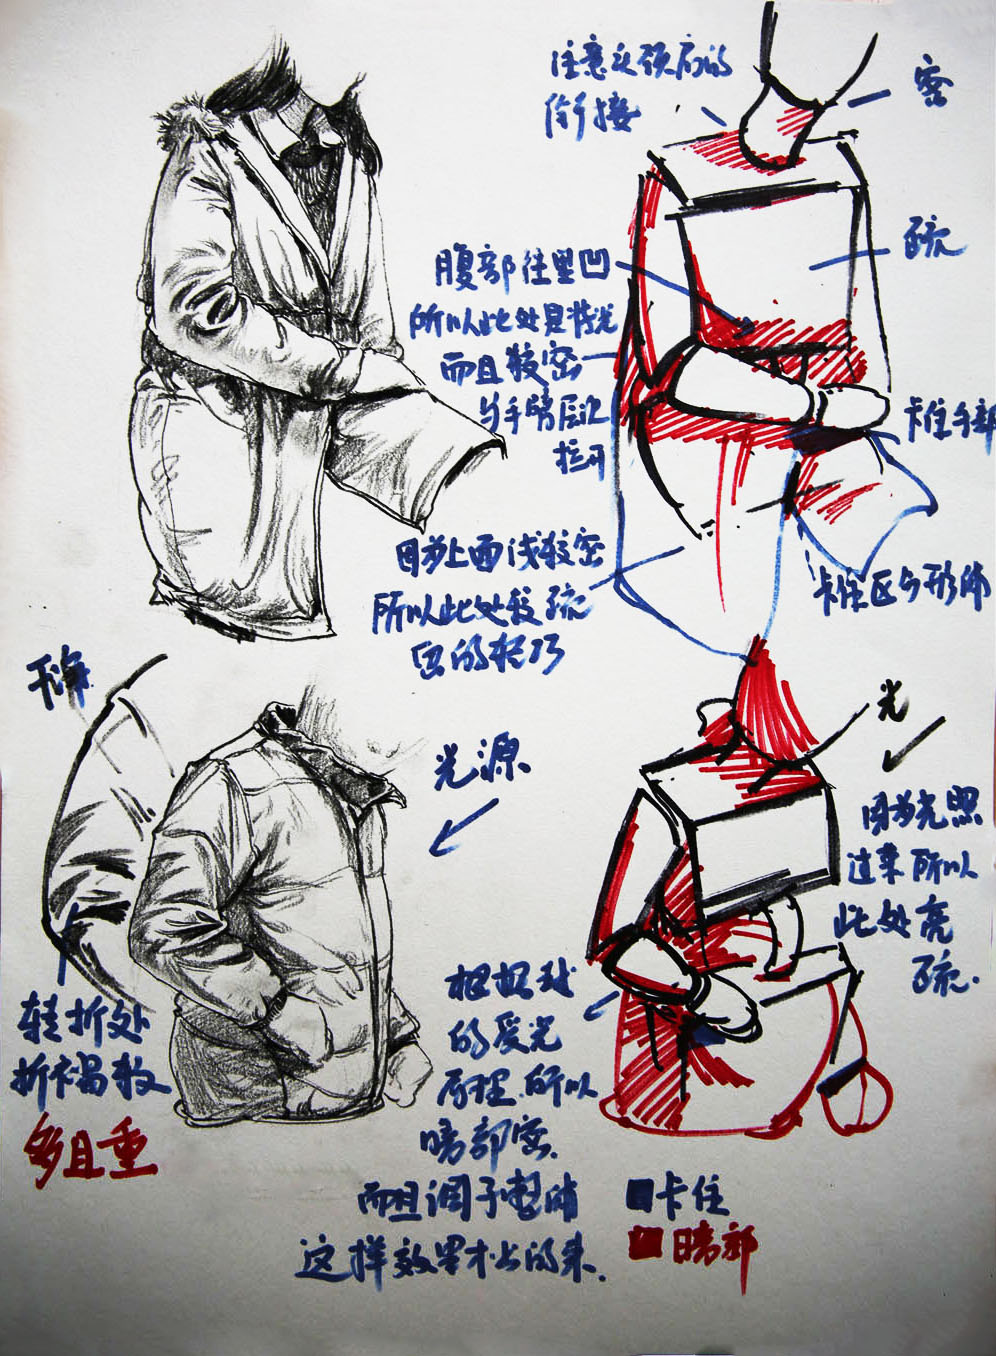 注意衣领后的
衔接
密
疏
腹部往里凹
所以此处是背光
而且较密
与手臂层次
拉开
卡住手部
因为上面线较密
所以此处较疏
卡住区分形体
光源
光
因为光照
过来所以
此处亮
疏.
转折处
折褶较
多且重
根据球
的受光
原理.所以
暗部密.
而且调子
这样效果才出的来.
卡住
暗部